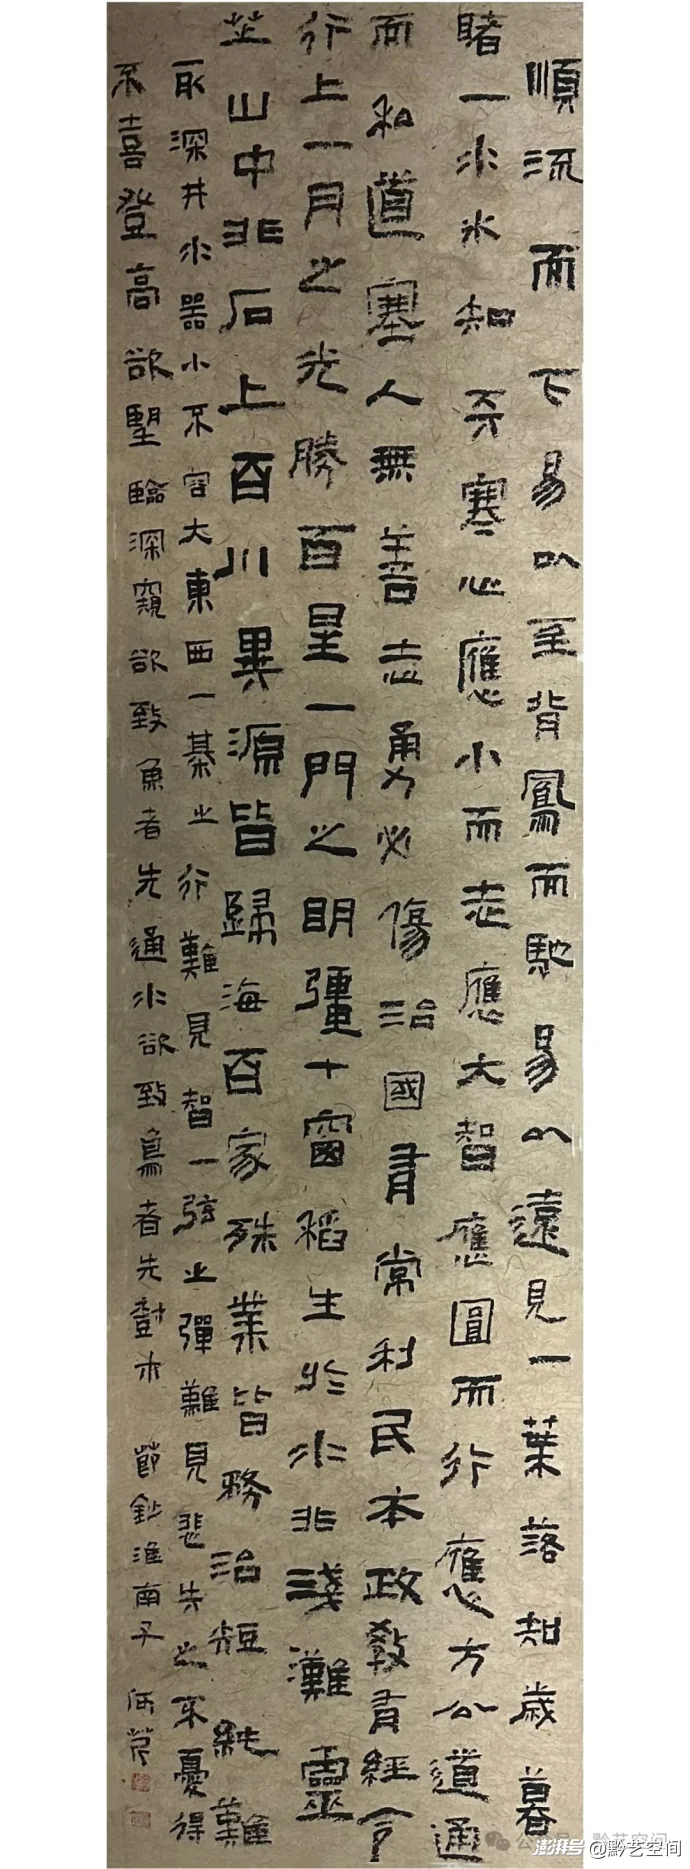 順流而下易以至背鳳而馳易以遠見一葉落知歲暮
睹一水冰知天寒心應小而志應大智應圓而行應方公道通
而私道塞人無善志勇必傷治國有常利民本政教有經令
行上一月之光勝百星一門之明彊十窗稻生於水非淺灘靈
芝山中非石上百川異源皆歸海百家殊業皆務治短綆難
取深井水器小不容大東西一棊之行難見智一弦之彈難見悲失之不憂得
不喜登高欲望臨深窺欲致魚者先通水欲致鳥者先樹木 節鈔淮南子
澎湃号@黔艺空间